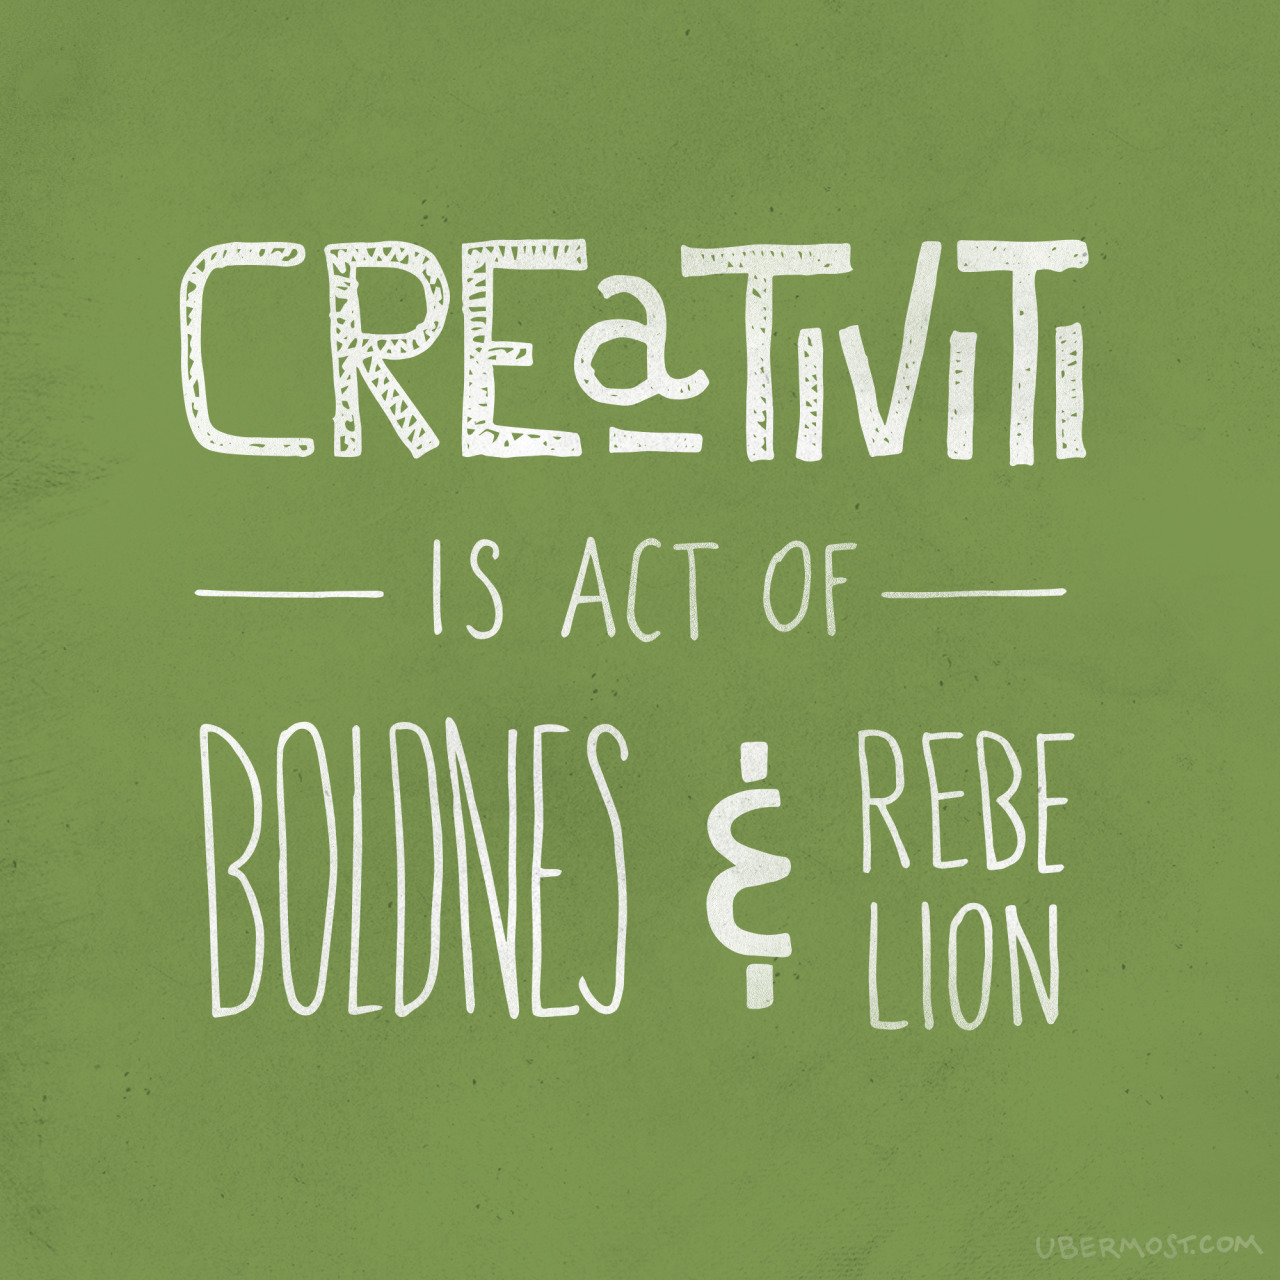 CREaTIVITI
IS ACT OF
BOLDNES & REBE
LION
UBERMOST.COM